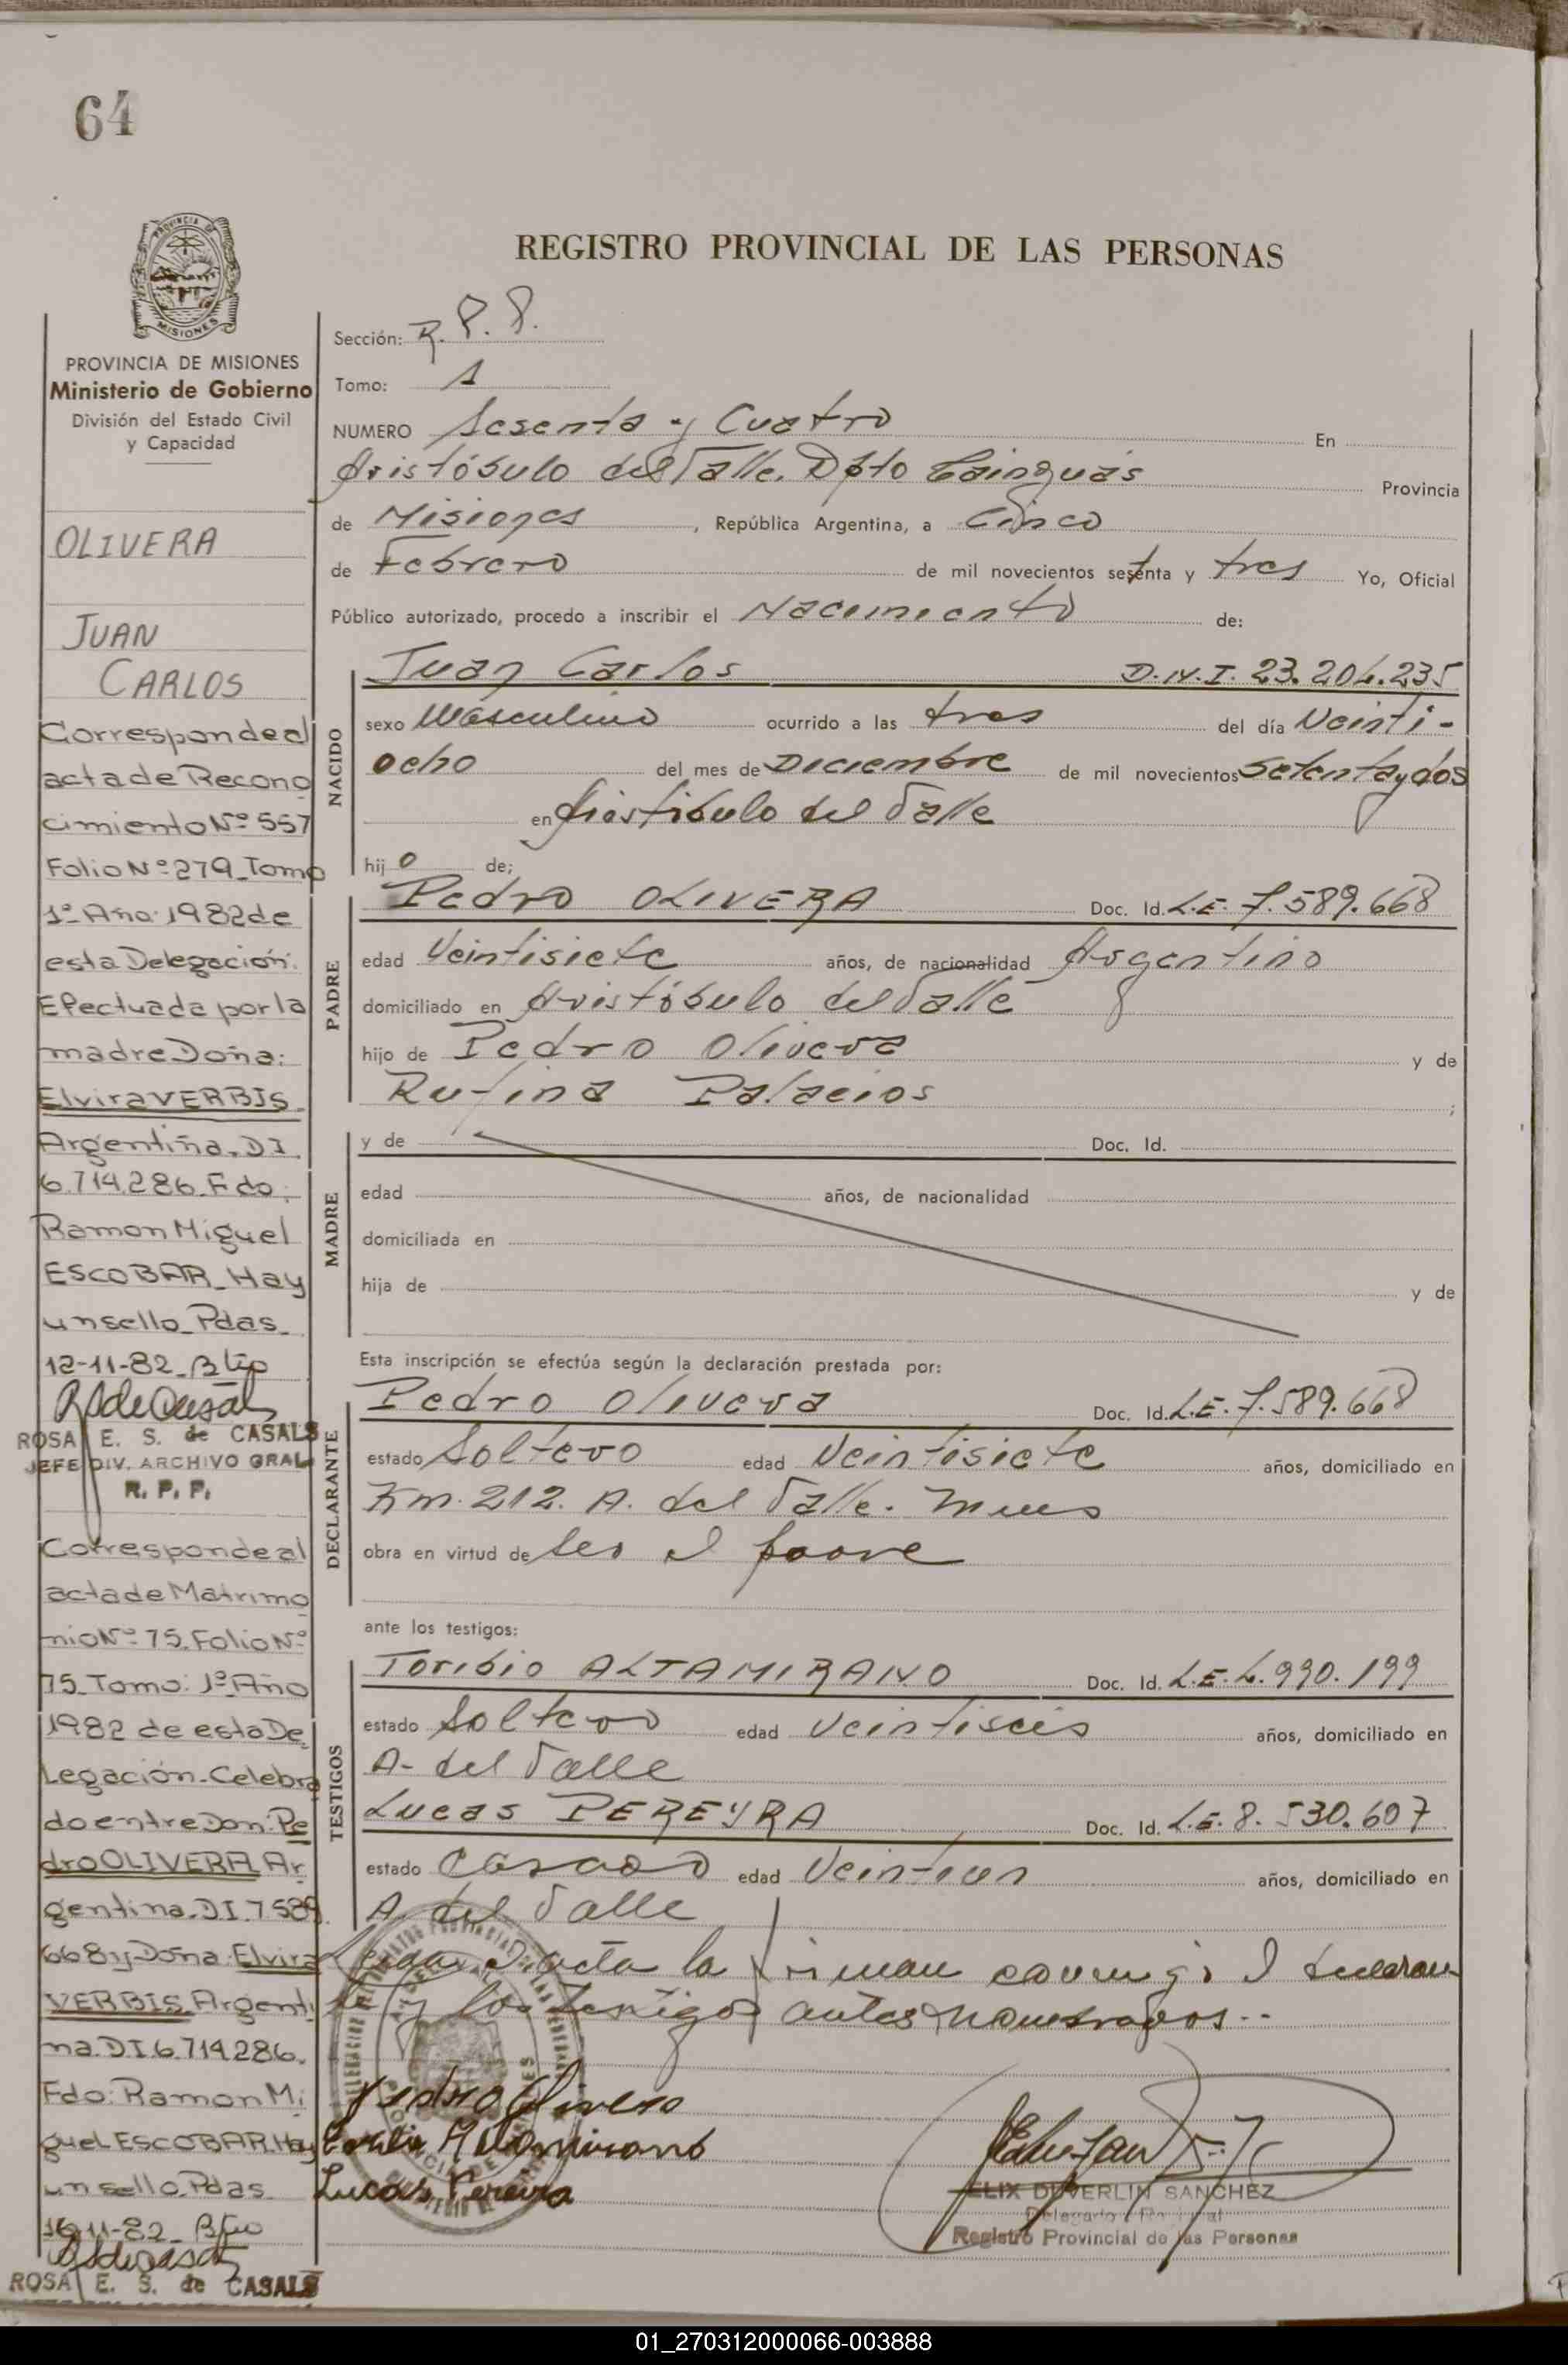 64
PROVINCIA DE
MISIONES
REGISTRO PROVINCIAL DE LAS PERSONAS
PROVINCIA DE MISIONES
Ministerio de Gobierno
División del Estado Civil
y Capacidad
OLIVERA
JUAN
CARLOS
Corresponde al
acta de Recono
cimiento Nº 557
Folio Nº 279 Tomo
1º Año: 1982 de
esta Delegación.
Efectuada por la
madre Doña:
Elvira VERBIS
Argentina. DI
6.714.286. Fdo:
Ramon Miguel
ESCOBAR_Hay
un sello_Pdas_
12-11-82_
ROSA E. S. de CASALS
JEFE DIV. ARCHIVO GRAL
R. P. P.
Corresponde al
acta de Matrimo
nio Nº 75. Folio Nº
75_Tomo: 1º Año
1982 de esta De
Legación_Celebra
do entre Don: Pe
dro OLIVERA Ar
gentina. DI. 7.589
668 y Doña: Elvira
VERBIS. Argenti
na. D.I. 6.714.286.
Fdo: Ramon Mi
guel ESCOBAR. Hay
un sello. Pdas
16-11-82_
ROSA E. S. de CASALS
Sección: R. P. P.
Tomo: 1
NUMERO Sesenta y Cuatro En
Aristóbulo del Valle. Dpto Cainguás Provincia
de Misiones, República Argentina, a Cinco
de Febrero de mil novecientos setenta y tres Yo, Oficial
Público autorizado, procedo a inscribir el Nacimiento de:
NACIDO
Juan Carlos D.N.I. 23.204.235
sexo Masculino ocurrido a las tres del día Veinti-
ocho del mes de Diciembre de mil novecientos Setenta y dos
en Aristóbulo del Valle
hijo de;
PADRE
Pedro OLIVERA Doc. Id. L.E. 7.589.668
edad Veintisiete años, de nacionalidad Argentino
domiciliado en Aristóbulo del Valle
hijo de Pedro Olivera y de
Rufina Palacios ;
MADRE
y de Doc. Id.
edad años, de nacionalidad
domiciliada en
hija de y de
Esta inscripción se efectúa según la declaración prestada por:
DECLARANTE
Pedro Olivera Doc. Id. L.E. 7.589.668
estado Soltero edad Veintisiete años, domiciliado en
Km. 212. A. del Valle. Mnes
obra en virtud de ser el padre
ante los testigos:
TESTIGOS
Toribio ALTAMIRANO Doc. Id. L.E. 4.990.199
estado Soltero edad Veintiseis años, domiciliado en
A- del Valle
Lucas PEREYRA Doc. Id. L.E. 8.530.607
estado Casado edad Veintiun años, domiciliado en
A. del Valle
Leida el acta la firman conmigo el declaran
te y los testigos antes nombrados..
Pedro Olivera
Toribio Altamirano
Lucas Pereyra
ELIX DUVERLIN SANCHEZ
Registro Provincial de las Personas
01_270312000066-003888